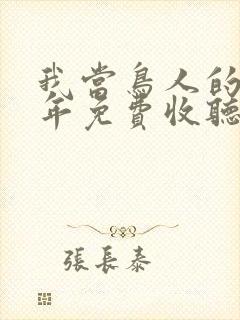 我當鳥人的
年免費收聽
張長泰